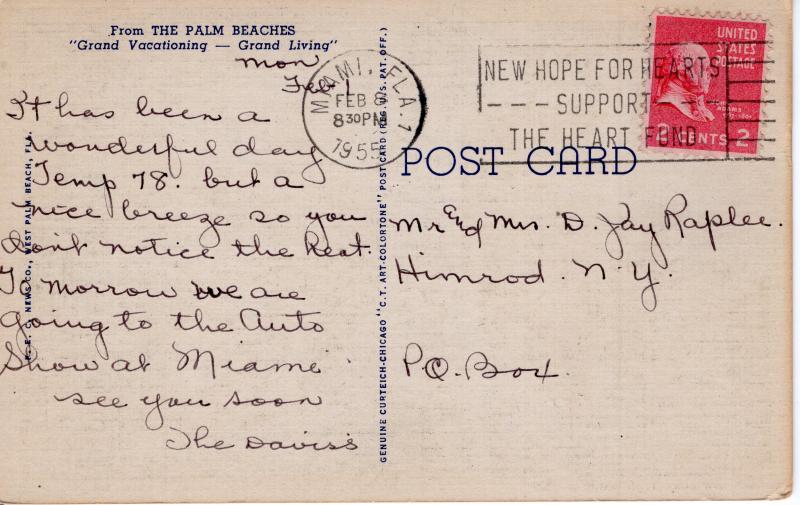 From THE PALM BEACHES
"Grand Vacationing — Grand Living"
Mon
Feb 1
It has been a
wonderful day
Temp 78. but a
nice breeze so you
Don't notice the Heat.
To morrow we are
going to the Auto
Show at Miame
see you soon
The Davis's
NEWS CO., WEST PALM BEACH, FLA.
GENUINE CURTEICH-CHICAGO "C.T. ART-COLORTONE" POST CARD (REG. U.S. PAT. OFF.)
MIAMI, FLA. 1
FEB 8
8 30 PM
1955
NEW HOPE FOR HEARTS
SUPPORT
THE HEART FUND
UNITED
STATES
POSTAGE
ADAMS
2 CENTS 2
POST CARD
Mr and Mrs. D. Jay Raplee.
Himrod. N.Y.
P.O. Box.